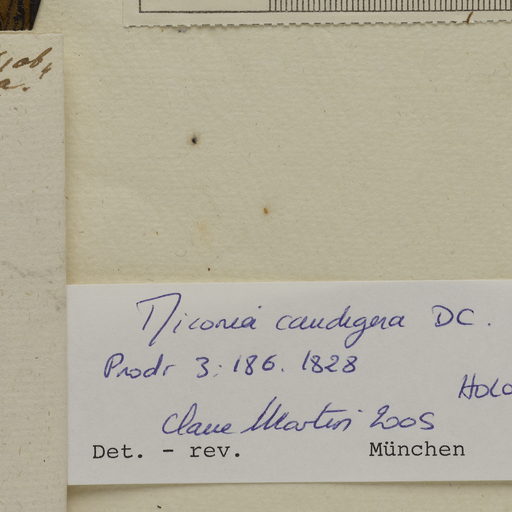 Miconia caudigera DC.
Prodr 3: 186. 1828
Holo
Martin 2005
Det. - rev. München